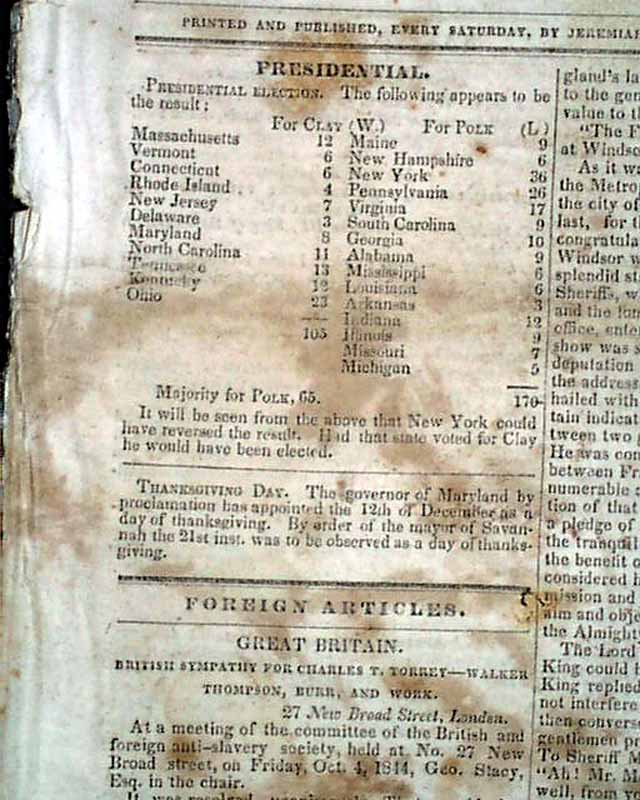 PRINTED AND PUBLISHED, EVERY SATURDAY, BY JEREMIAH
PRESIDENTIAL.
PRESIDENTIAL ELECTION. The following appears to be
the result:
For CLAY (W.) For POLK (L)
Massachusetts 12 Maine 9
Vermont 6 New Hampshire 6
Connecticut 6 New York 36
Rhode Island 4 Pennsylvania 26
New Jersey 7 Virginia 17
Delaware 3 South Carolina 9
Maryland 8 Georgia 10
North Carolina 11 Alabama 9
Tennessee 13 Mississippi 6
Kentucky 12 Louisiana 6
Ohio 23 Arkansas 3
Indiana 12
105 Illinois 9
Missouri 7
Michigan 5
Majority for POLK, 65. 170
It will be seen from the above that New York could
have reversed the result. Had that state voted for Clay
he would have been elected.
THANKSGIVING DAY. The governor of Maryland by
proclamation has appointed the 12th of December as a
day of thanksgiving. By order of the mayor of Savan-
nah the 21st inst. was to be observed as a day of thanks-
giving.
FOREIGN ARTICLES.
GREAT BRITAIN.
BRITISH SYMPATHY FOR CHARLES T. TORREY—WALKER
THOMPSON, BURR, AND WORK.
27 New Broad Street, London.
At a meeting of the committee of the British and
foreign anti-slavery society, held at No. 27 New
Broad street, on Friday, Oct. 4, 1844, Geo. Stacy,
Esq. in the chair.
gland's la
to the gen
value to th
"The F
at Windso
As it wa
the Metro
the city of
last, for t
congratula
Windsor w
splendid st
Sheriffs, w
and the lon
office, ente
show was s
deputation
the address
hailed with
tain indicat
tween two
He was con
between Fr
numerable
tion of that
a pledge of
the tranquil
the benefit o
considered i
mission and
aim and obje
the Almight
The Lord
King could
King replied
not interfere
then convers
gentlemen pr
To Sheriff M
"Ah! Mr. M
well, from yo